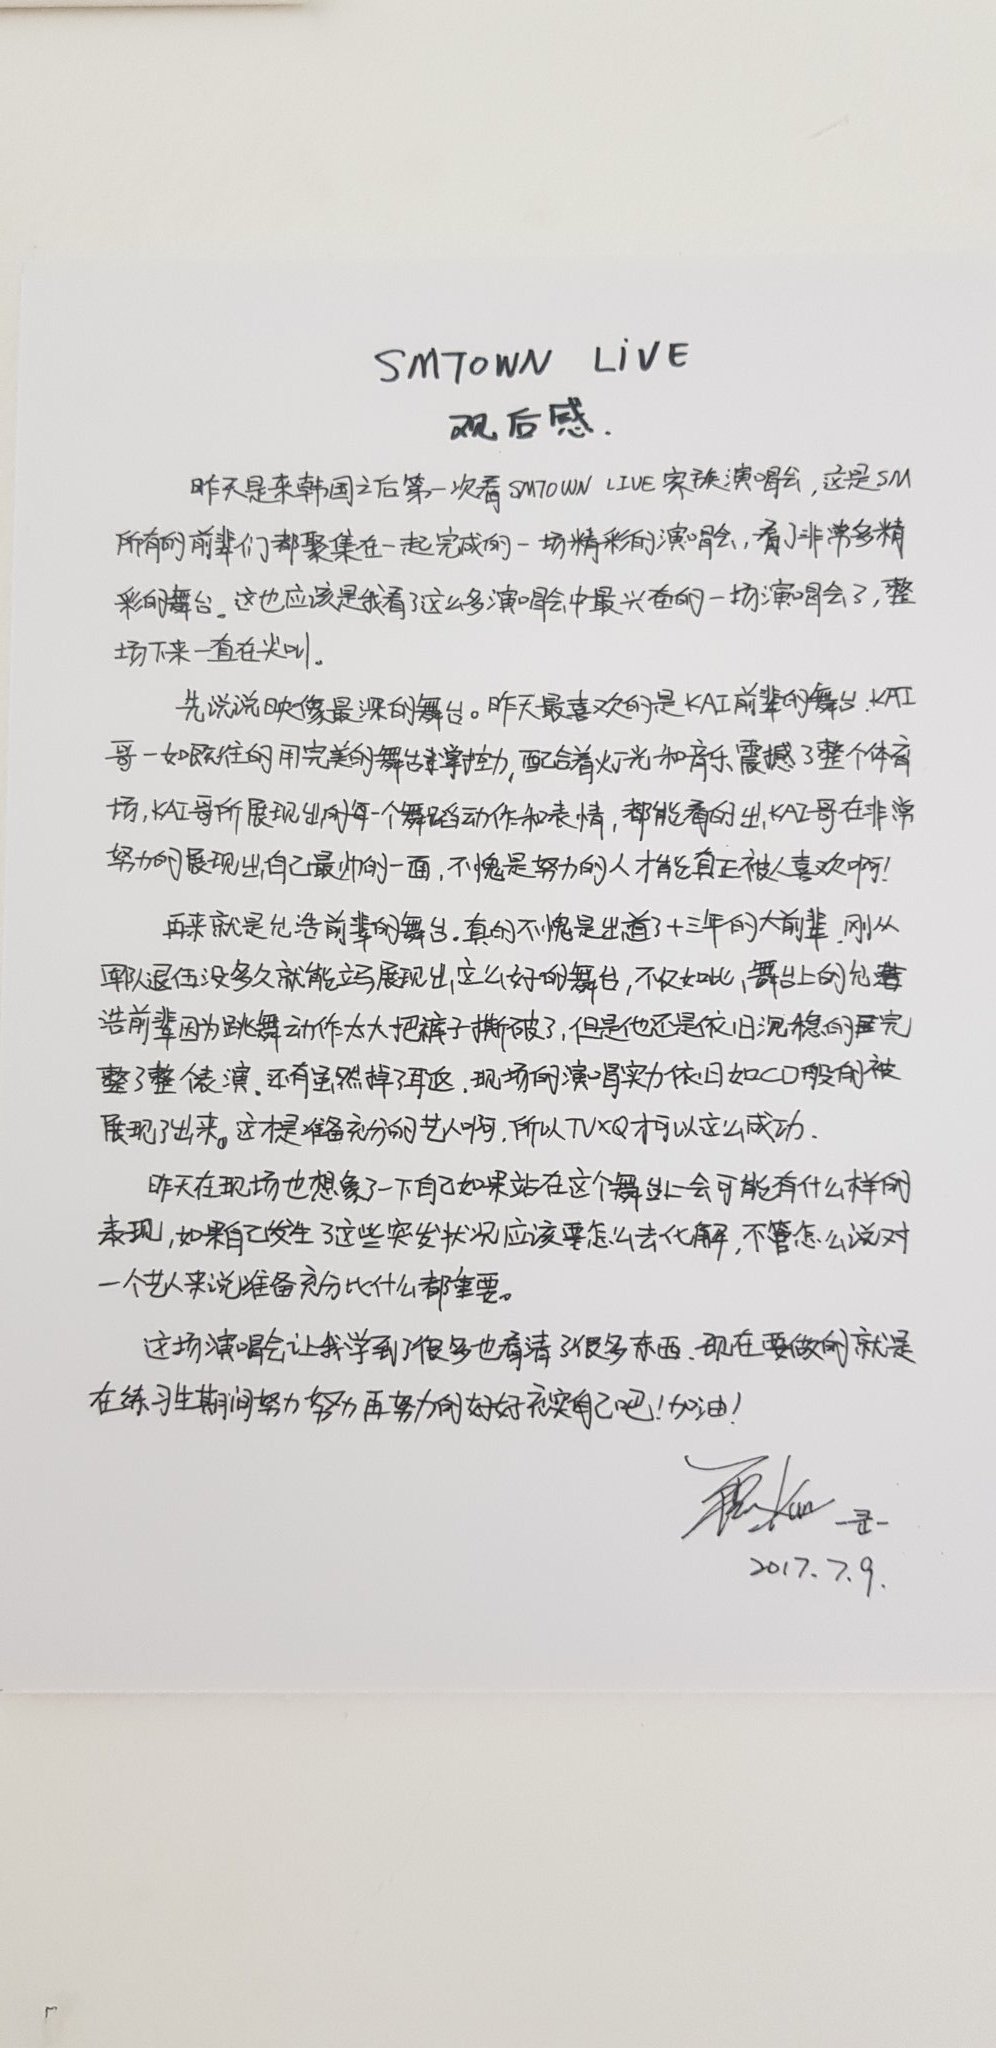 SMTOWN LiVE
观后感.
昨天是来韩国之后第一次看SMTOWN LIVE家族演唱会,这是SM
所有的前辈们都聚集在一起完成的一场精彩的演唱会,看了非常多精
彩的舞台。这也应该是我看了这么多演唱会中最兴奋的一场演唱会了,整
场下来一直在尖叫。
先说说映像最深的舞台。昨天最喜欢的是KAI前辈的舞台.KAI
哥一如既往的用完美的舞台掌控力,配合着灯光和音乐震撼了整个体育
场,KAI哥所展现出的每一个舞蹈动作和表情,都能看的出,KAI哥在非常
努力的展现出自己最帅的一面,不愧是努力的人才能真正被人喜欢啊!
再来就是允浩前辈的舞台.真的不愧是出道了十三年的大前辈,刚从
军队退伍没多久就能立马展现出这么好的舞台,不仅如此,舞台上的允
浩前辈因为跳舞动作太大把裤子撕破了,但是他还是依旧沉稳的完
整了整个表演.还有虽然掉了耳返,现场的演唱实力依旧如CD般的被
展现了出来。这才是准备充分的艺人啊,所以TVXQ才可以这么成功.
昨天在现场也想象了一下自己如果站在这个舞台上会可能有什么样的
表现,如果自己发生了这些突发状况应该要怎么去化解,不管怎么说对
一个艺人来说准备充分比什么都重要。
这场演唱会让我学到了很多也看清了很多东西.现在要做的就是
在练习生期间努力努力再努力的好好充实自己吧!加油!
Kun -쿤-
2017.7.9.